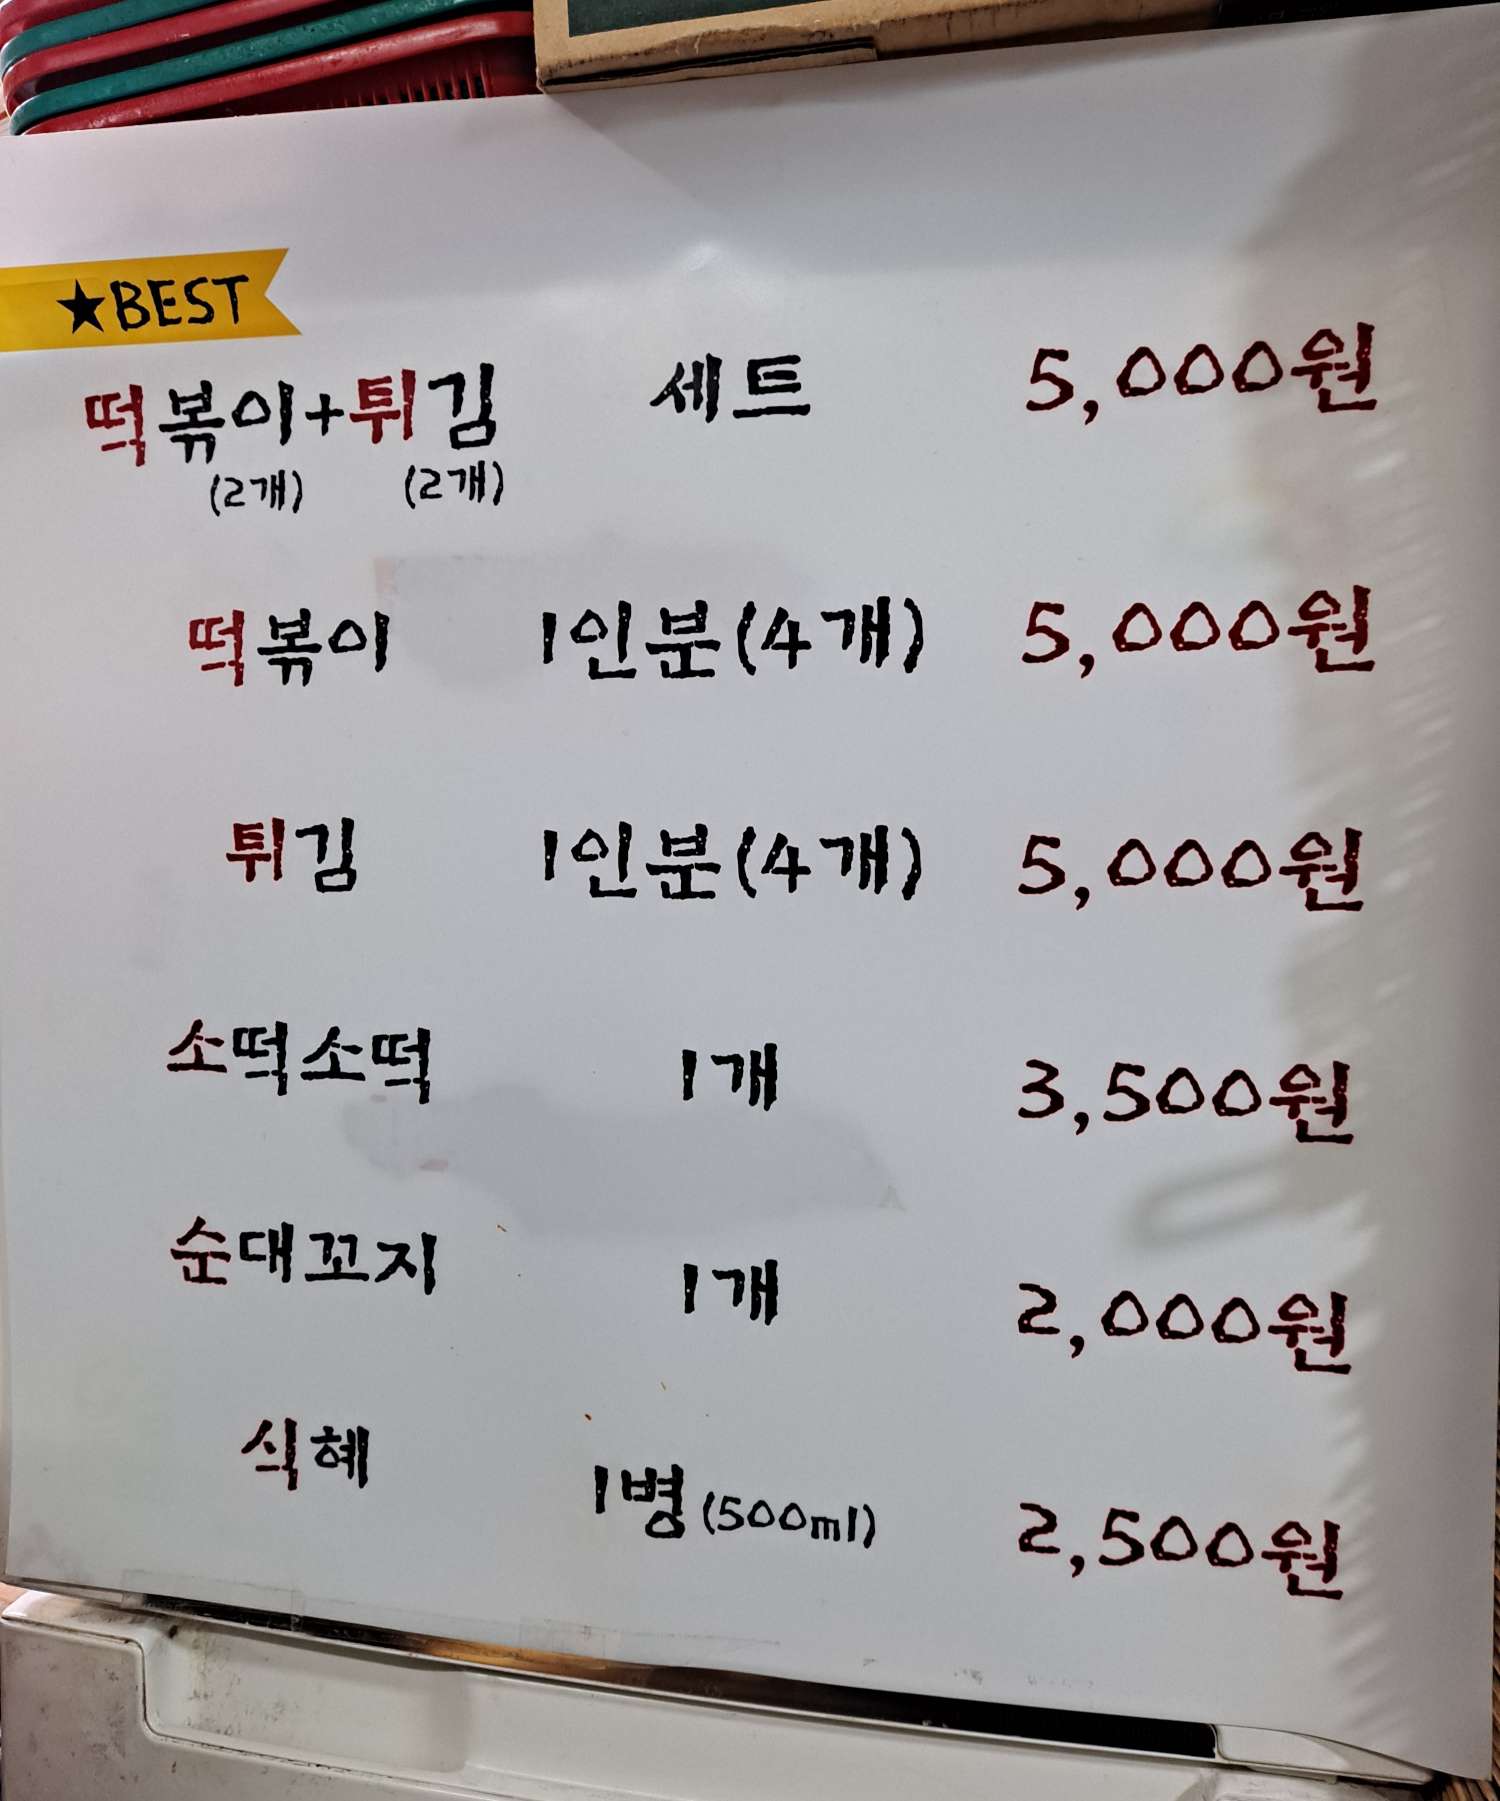 ★BEST
떡볶이+튀김 세트 5,000원
(2개) (2개)
떡볶이 1인분(4개) 5,000원
튀김 1인분(4개) 5,000원
소떡소떡 1개 3,500원
순대꼬지 1개 2,000원
식혜 1병(500ml) 2,500원